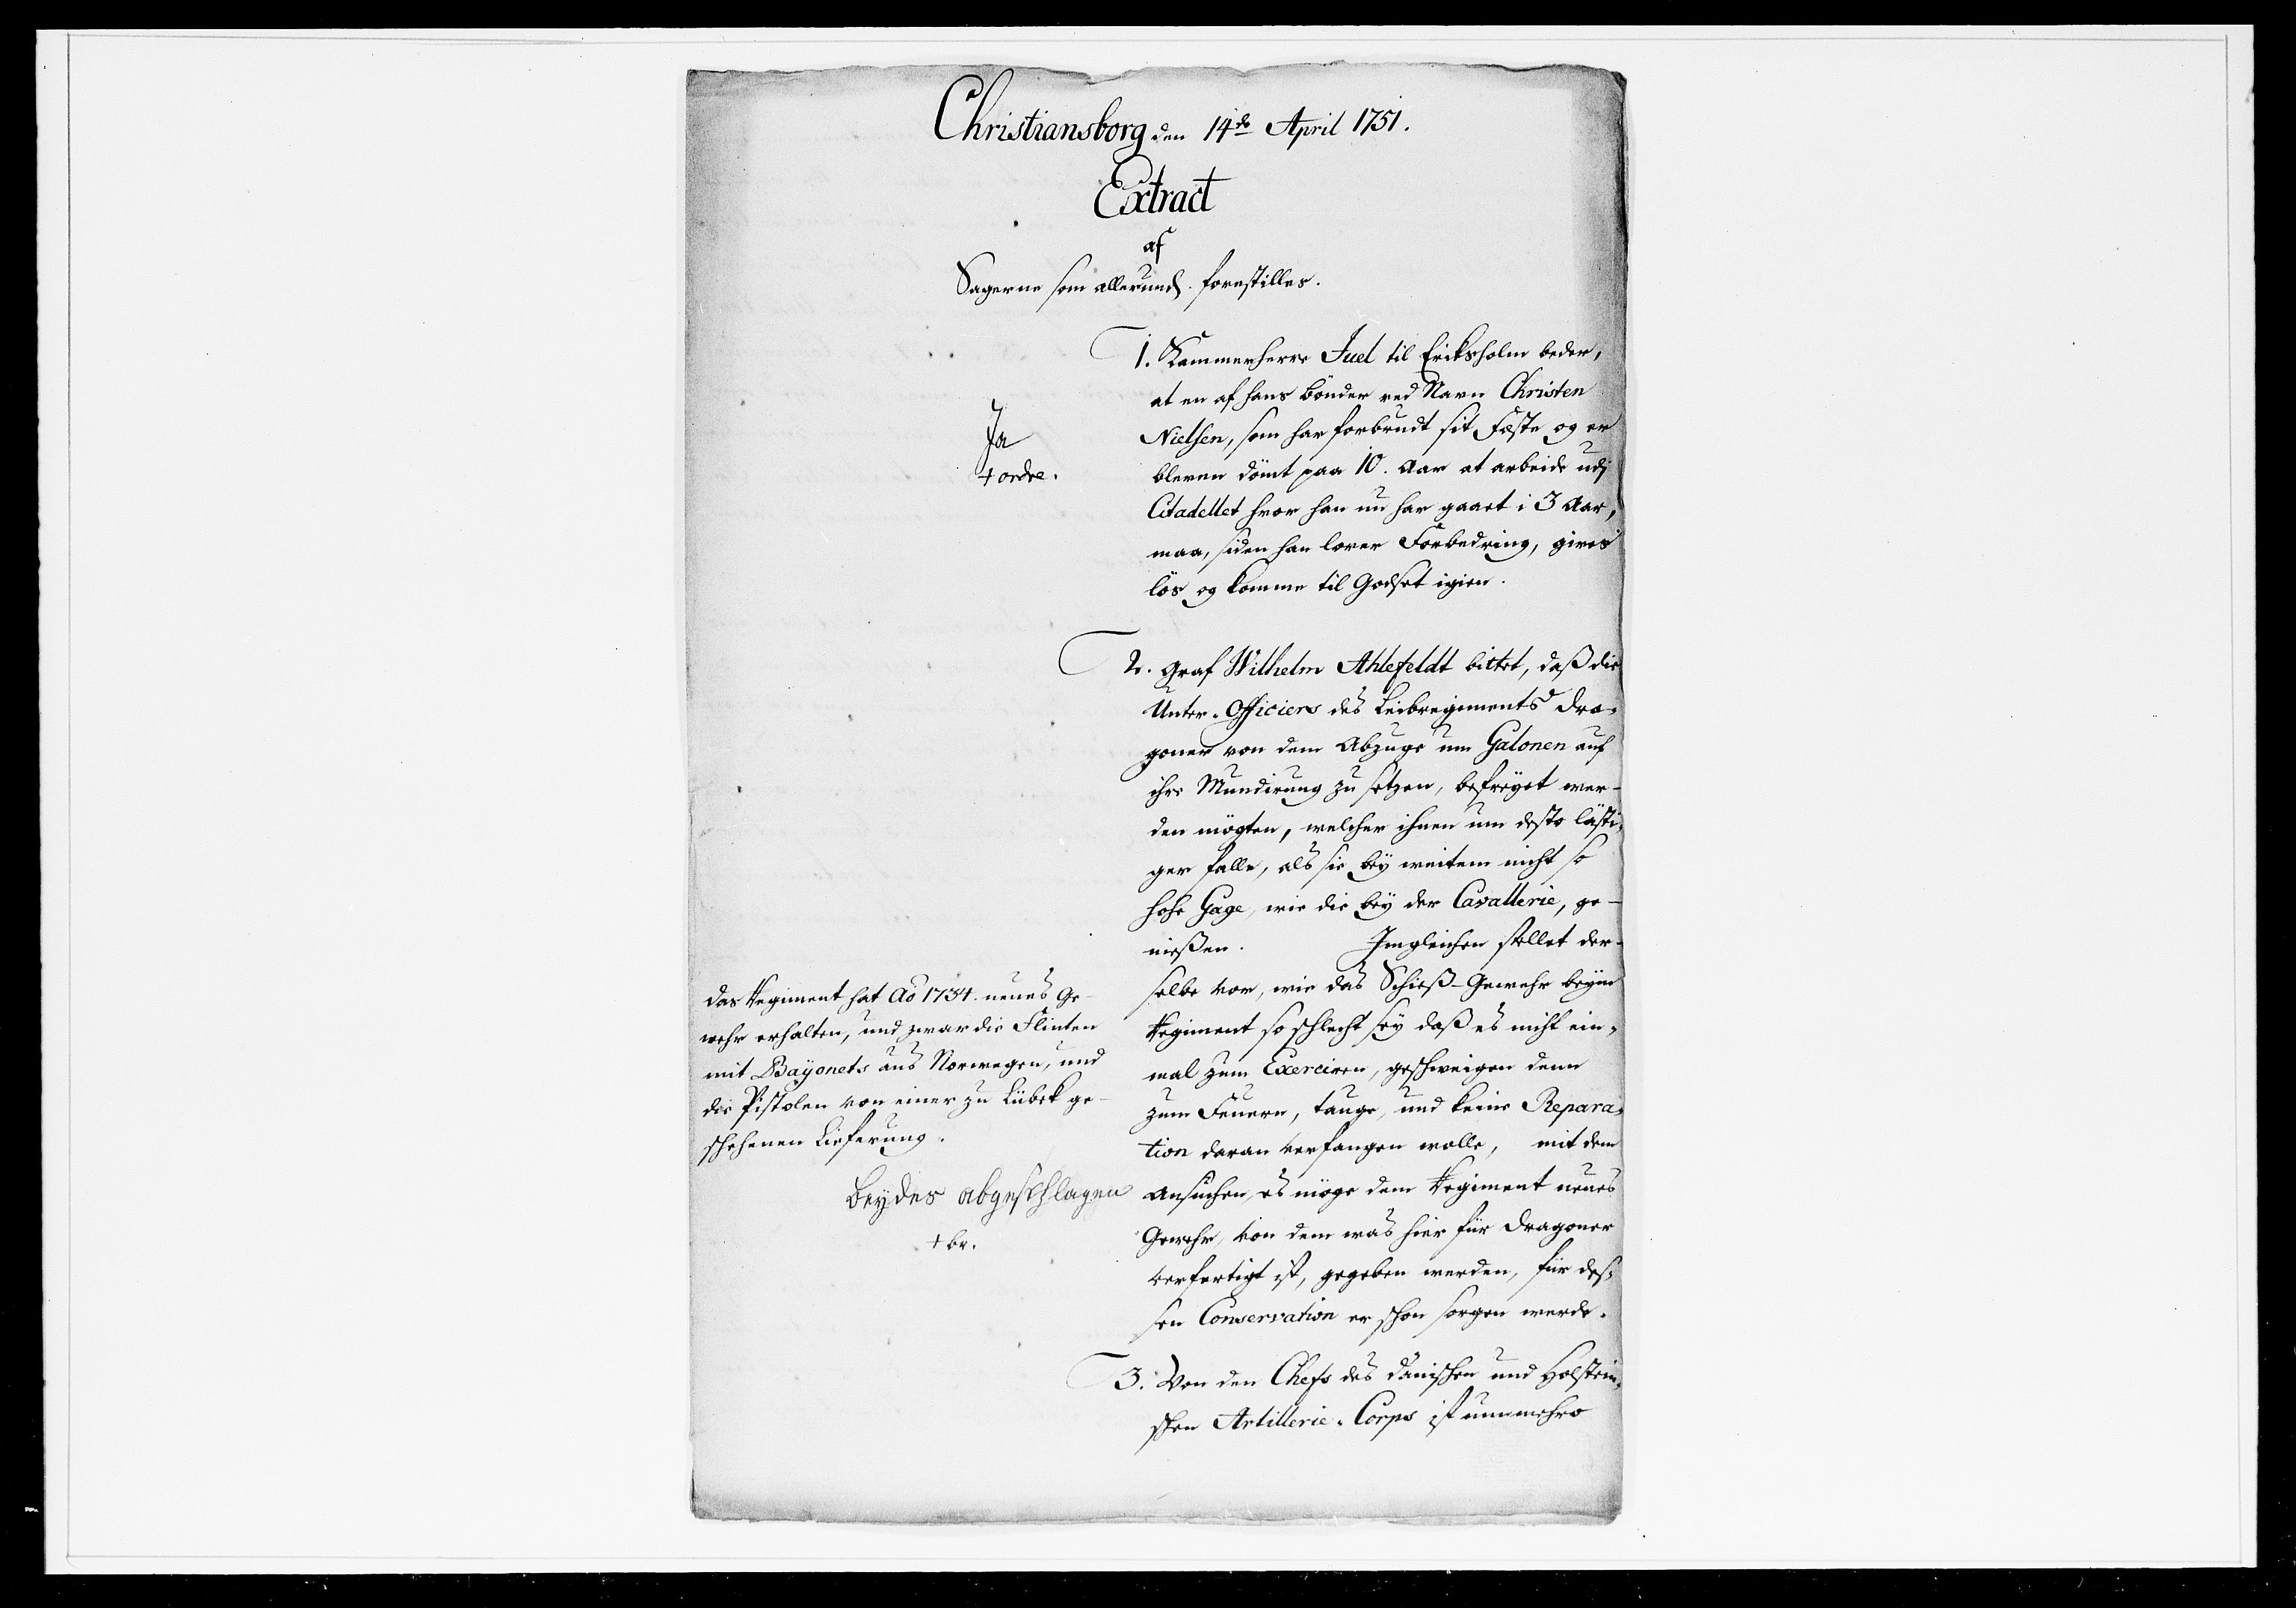 Christiansborg den 14de April 1751.
Extract
af
Sagerne som allerund. forestilles.
1. Kammerherre Juel til Eriksholm beder,
at en af hans bönder ved Navn Christen
Nielsen, som har forbrudt sit Fæste og er
bleven dömt paa 10. Aar at arbeide udj
Citadellet hvor han nu har gaaet i 3 Aar,
maa, siden han lover Forbedring, gives
lös og komme til Godset igien.
Ja
+ ordre.
2. Graf Wilhelm Ahlefeldt bittet, daß die
Unter-Officiers des Leibregiments Dra-
goner von dem Abzuge um Galonen auf
ihre Mundirung zu setzen, befreyet wer-
den mögten, welcher ihnen um desto lästi-
ger falle, als sie bey weitem nicht so
hohe Gage, wie die bey der Cavallerie, ge-
nießen. Imgleichen stellet der-
selbe vor, wie das Schieß-Gewehr beym
Regiment so schlecht sey daß es nicht ein-
mal zum Exerciren, geschweigen denn
zum Feuern, tauge, und keine Repara-
tion daran verfangen wolle, mit dem
Ansuchen, es möge dem Regiment neues
Gewehr, von dem was hier für Dragoner
verfertigt ist, gegeben werden, für des-
sen Conservation er schon sorgen werde.
das Regiment hat Ao 1734. neues Ge-
wehr erhalten, und zwar die Flinten
mit Bayonets aus Norwegen, und
die Pistolen von einer zu Lübek ge-
schehenen Lieferung.
Beydes abgeschlagen
+ br.
3. Von den Chefs des dänischen und Holstein-
schen Artillerie-Corps ist nunmehro